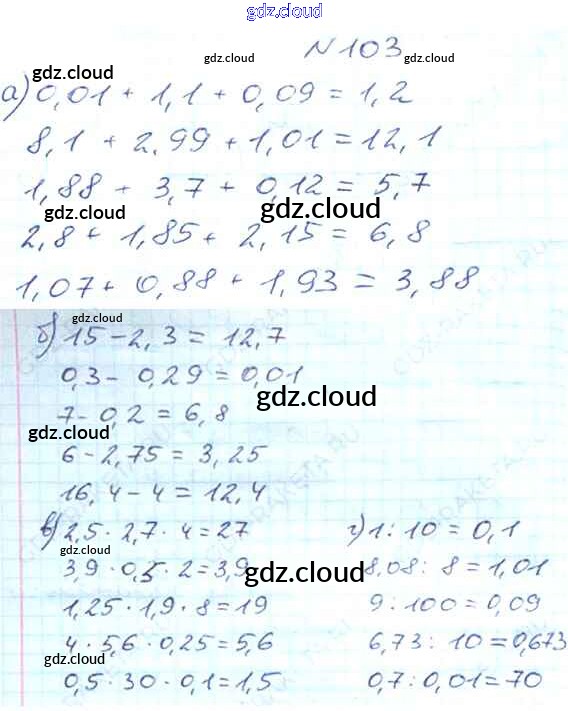 gdz.cloud
N 103
gdz.cloud
gdz.cloud
а) 0,01 + 1,1 + 0,09 = 1,2
8,1 + 2,99 + 1,01 = 12,1
1,88 + 3,7 + 0,12 = 5,7
gdz.cloud
gdz.cloud
2,8 + 1,85 + 2,15 = 6,8
1,07 + 0,88 + 1,93 = 3,88
gdz.cloud
б) 15 - 2,3 = 12,7
0,3 - 0,29 = 0,01
gdz.cloud
7 - 0,2 = 6,8
gdz.cloud
6 - 2,75 = 3,25
16,4 - 4 = 12,4
в) 2,5 · 2,7 · 4 = 27
gdz.cloud
3,9 · 0,5 · 2 = 3,9
gdz.cloud
1,25 · 1,9 · 8 = 19
4 · 5,6 · 0,25 = 5,6
gdz.cloud
0,5 · 30 · 0,1 = 1,5
г) 1 : 10 = 0,1
8,08 : 8 = 1,01
9 : 100 = 0,09
6,73 : 10 = 0,673
0,7 : 0,01 = 70